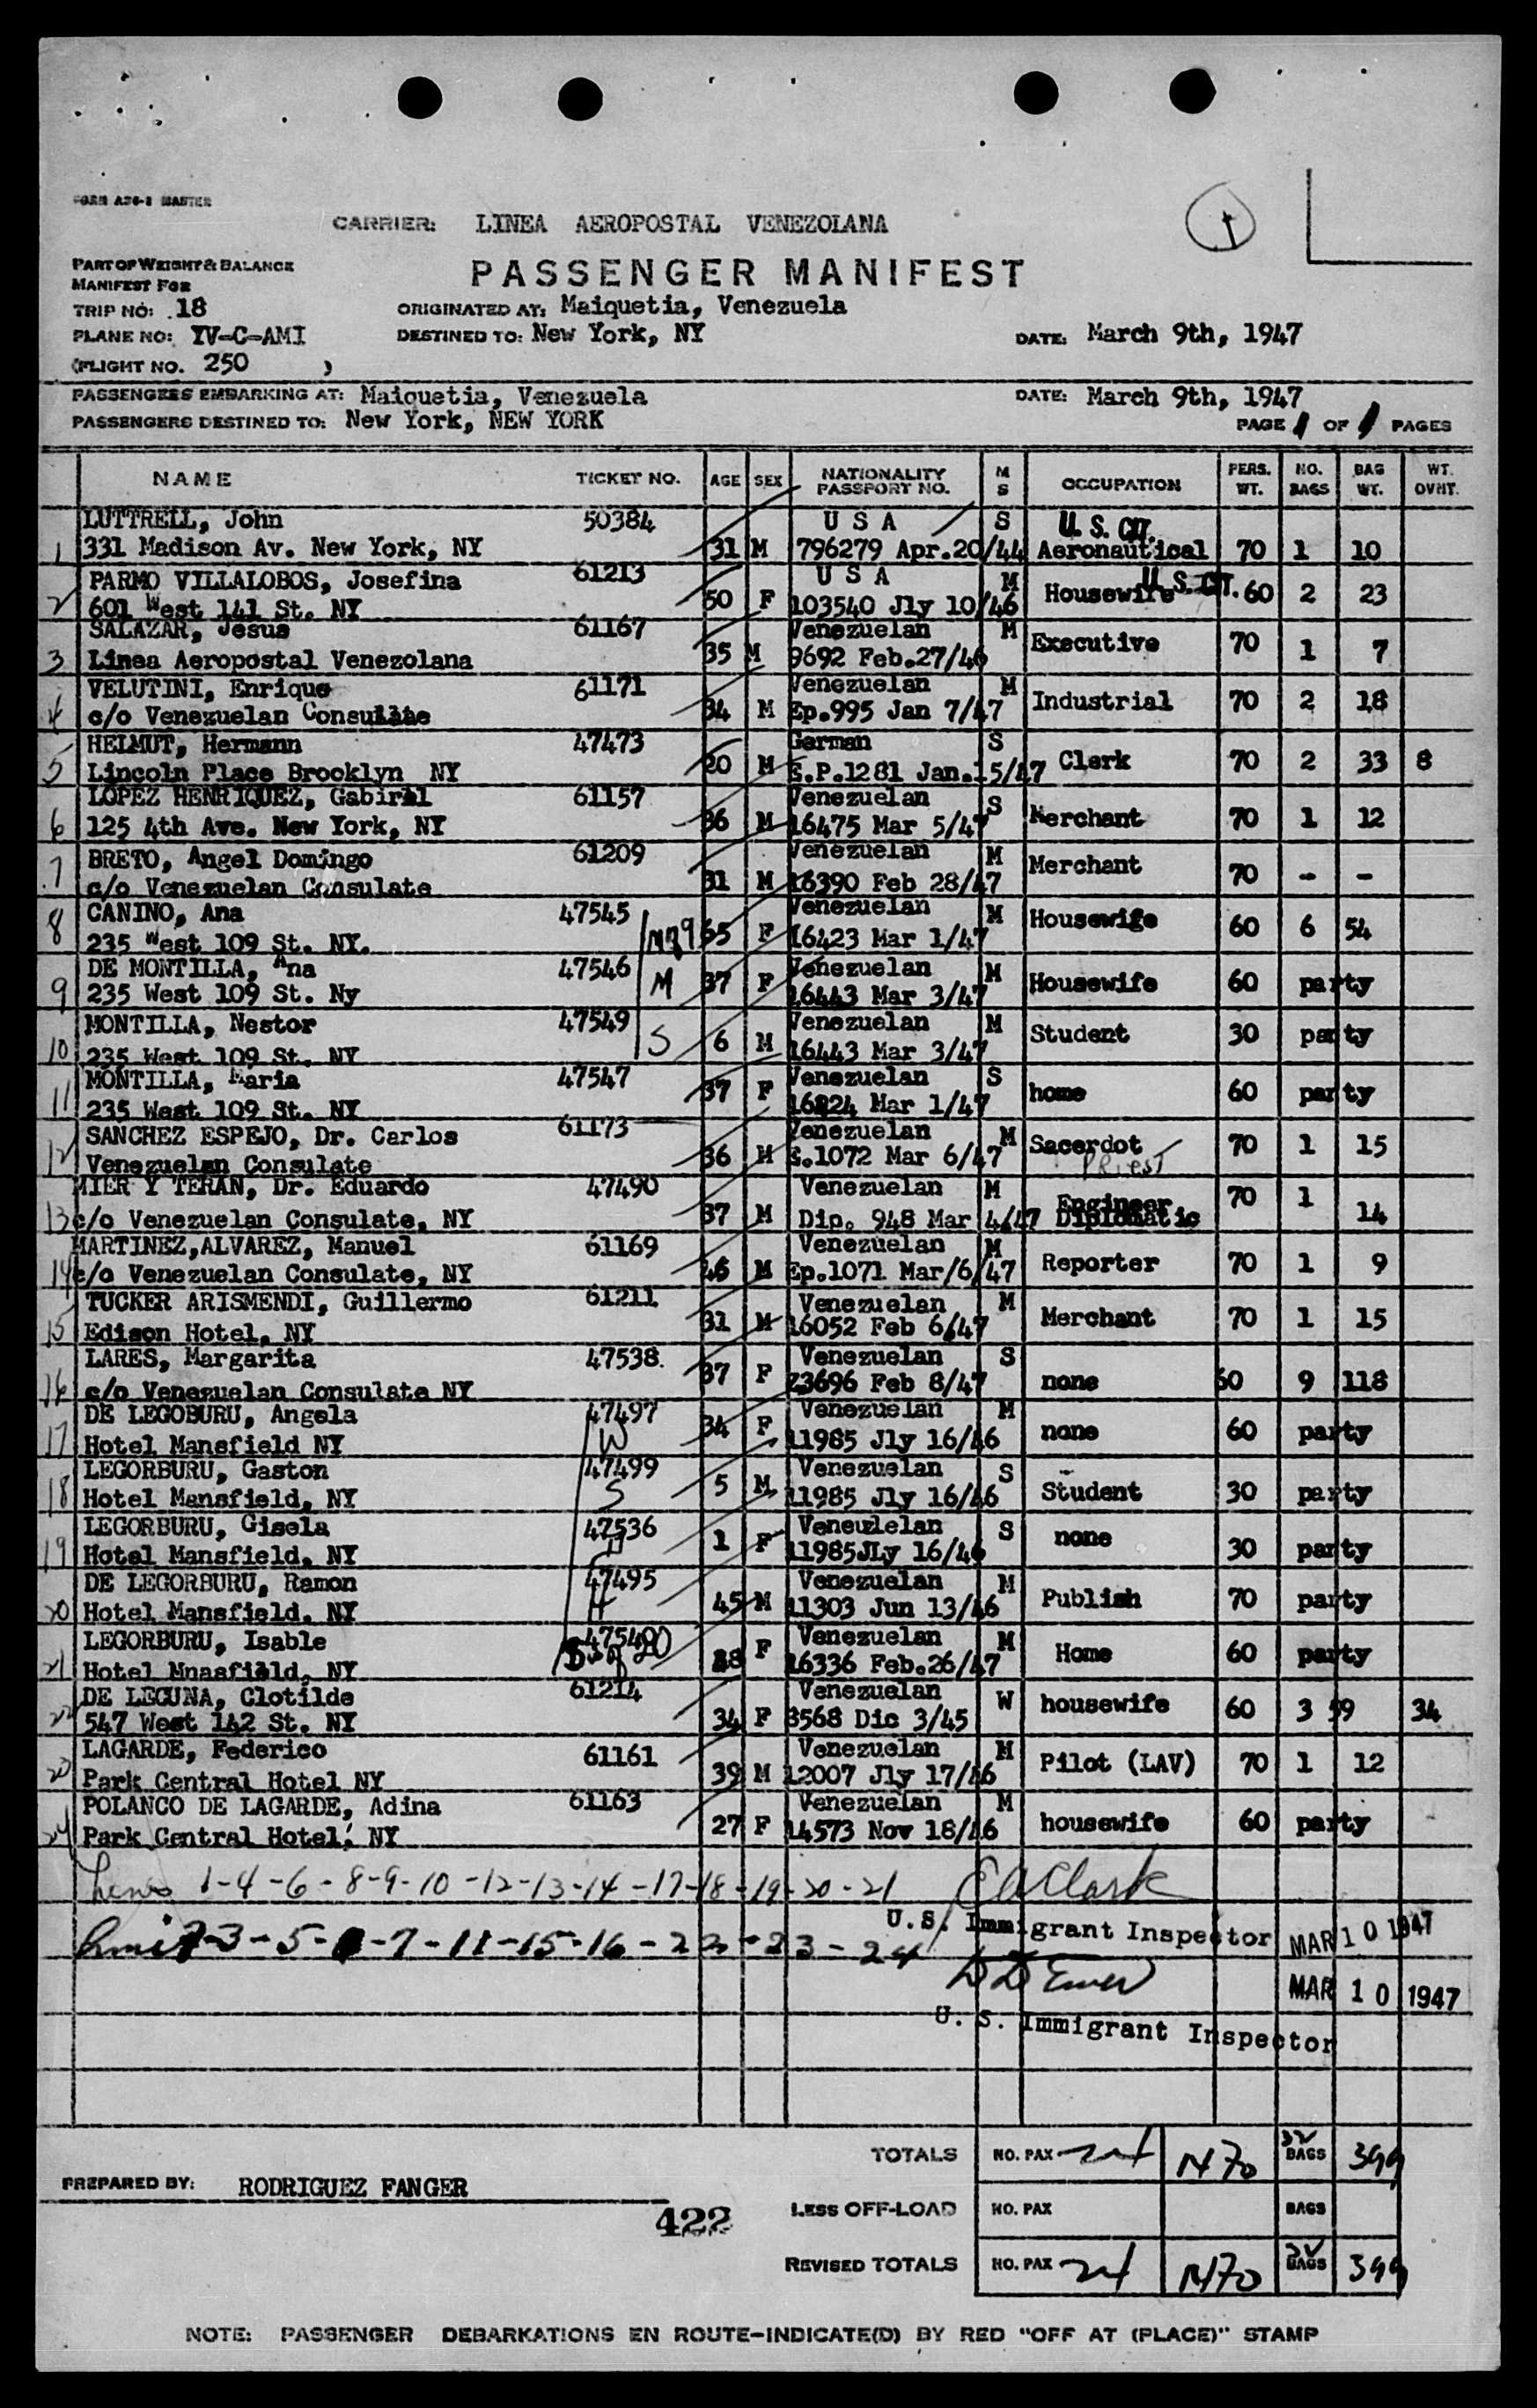 FORM A26-2 MASTER
CARRIER: LINEA AEROPOSTAL VENEZOLANA
1
PART OF WEIGHT & BALANCE
MANIFEST FOR
PASSENGER MANIFEST
TRIP NO: 18 ORIGINATED AT: Maiquetia, Venezuela
PLANE NO: YV-C-AMI DESTINED TO: New York, NY DATE: March 9th, 1947
(FLIGHT NO. 250 )
PASSENGERS EMBARKING AT: Maiquetia, Venezuela DATE: March 9th, 1947
PASSENGERS DESTINED TO: New York, NEW YORK PAGE 1 OF 1 PAGES
NAME TICKET NO. AGE SEX NATIONALITY PASSPORT NO. M S OCCUPATION PERS. WT. NO. BAGS BAG WT. WT. OVHT.
LUTTRELL, John 50384 U S A S U. S. CIT.
1 331 Madison Av. New York, NY 31 M 796279 Apr.20/44 Aeronautical 70 1 10
PARMO VILLALOBOS, Josefina 61213 U S A M U. S. CIT.
2 601 West 141 St. NY 50 F 103540 Jly 10/46 Housewife 60 2 23
SALAZAR, Jesus 61167 Venezuelan M
3 Linea Aeropostal Venezolana 35 M 9692 Feb.27/46 Executive 70 1 7
VELUTINI, Enrique 61171 Venezuelan M
4 c/o Venezuelan Consulate 34 M Ep.995 Jan 7/47 Industrial 70 2 18
HELMUT, Hermann 47473 German S
5 Lincoln Place Brooklyn NY 20 M E.P.1281 Jan.15/47 Clerk 70 2 33 8
LOPEZ HENRIQUEZ, Gabirel 61157 Venezuelan S
6 125 4th Ave. New York, NY 36 M 16475 Mar 5/47 Merchant 70 1 12
BRETO, Angel Domingo 61209 Venezuelan M
7 c/o Venezuelan Consulate 31 M 16390 Feb 28/47 Merchant 70 - -
CANINO, Ana 47545 Venezuelan M
8 235 West 109 St. NY. 65 F 16423 Mar 1/47 Housewife 60 6 54
DE MONTILLA, Ana 47546 Venezuelan M
9 235 West 109 St. Ny M 37 F 16443 Mar 3/47 Housewife 60 party
MONTILLA, Nestor 47549 Venezuelan M
10 235 West 109 St. NY S 6 M 16443 Mar 3/47 Student 30 party
MONTILLA, Maria 47547 Venezuelan S
11 235 West 109 St. NY 37 F 16424 Mar 1/47 home 60 party
SANCHEZ ESPEJO, Dr. Carlos 61173 Venezuelan M
12 Venezuelan Consulate 36 M E.1072 Mar 6/47 Sacerdot 70 1 15
Priest
MIER Y TERAN, Dr. Eduardo 47490 Venezuelan M Engineer
13 c/o Venezuelan Consulate, NY 37 M Dip. 948 Mar 4/47 Diplomatic 70 1 14
MARTINEZ,ALVAREZ, Manuel 61169 Venezuelan M
14 c/o Venezuelan Consulate, NY 46 M Ep.1071 Mar/6/47 Reporter 70 1 9
TUCKER ARISMENDI, Guillermo 61211 Venezuelan M
15 Edison Hotel, NY 31 M 16052 Feb 6/47 Merchant 70 1 15
LARES, Margarita 47538 Venezuelan S
16 c/o Venezuelan Consulate NY 37 F 23696 Feb 8/47 none 60 9 118
DE LEGOBURU, Angela 47497 Venezuelan M
17 Hotel Mansfield NY W 34 F 11985 Jly 16/46 none 60 party
LEGORBURU, Gaston 47499 Venezuelan S
18 Hotel Mansfield, NY S 5 M 11985 Jly 16/46 Student 30 party
LEGORBURU, Gisela 47536 Veneulelan S
19 Hotel Mansfield, NY 1 F 11985JLy 16/46 none 30 party
DE LEGORBURU, Ramon 47495 Venezuelan M
20 Hotel Mansfield, NY H 45 M 11303 Jun 13/46 Publish 70 party
LEGORBURU, Isable Venezuelan M
21 Hotel Mnasfield, NY F 16336 Feb.26/47 Home 60 party
DE LECUNA, Clotilde 61214 Venezuelan W
22 547 West 142 St. NY 34 F 8568 Dic 3/45 housewife 60 3 59 34
LAGARDE, Federico 61161 Venezuelan M
23 Park Central Hotel NY 39 M 12007 Jly 17/46 Pilot (LAV) 70 1 12
POLANCO DE LAGARDE, Adina 61163 Venezuelan M
24 Park Central Hotel, NY 27 F 14573 Nov 18/46 housewife 60 party
Lines 1-4-6-8-9-10-12-13-14-17-18-19-20-21 E A Clark
U.S. Immigrant Inspector MAR 10 1947
3-5-7-11-15-16-22-23-24
MAR 10 1947
U. S. Immigrant Inspector
TOTALS NO. PAX 24 1470 32 BAGS 399
PREPARED BY: RODRIGUEZ FANGER
422
LESS OFF-LOAD NO. PAX BAGS
REVISED TOTALS NO. PAX 24 1470 32 BAGS 399
NOTE: PASSENGER DEBARKATIONS EN ROUTE-INDICATE(D) BY RED "OFF AT (PLACE)" STAMP